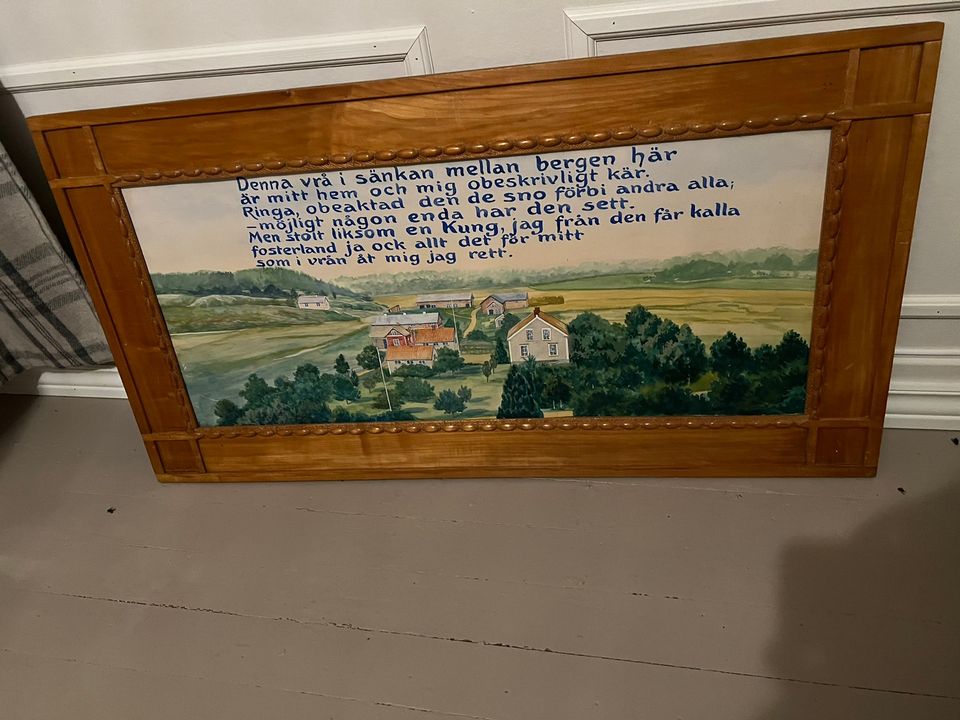 Denna vrå i sänkan mellan bergen här
är mitt hem och mig obeskrivligt kär.
Ringa, obeaktad den de sno förbi andra alla;
–möjligt någon enda har den sett.
Men stolt liksom en Kung, jag från den får kalla
fosterland ja ock allt det för mitt
som i vrån åt mig jag rett.